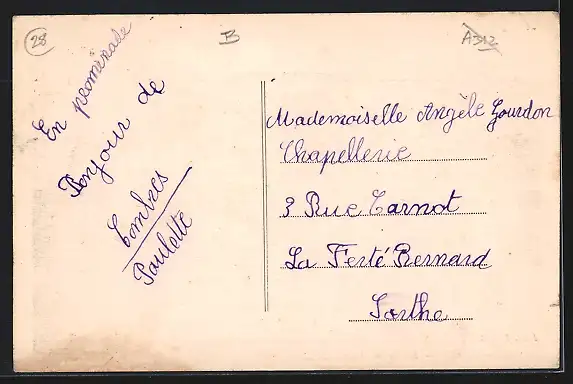 28
B
A312
En promenade
Bonjour de
Combres
Paulette
Mademoiselle Angèle Gourdon
Chapellerie
3 Rue Carnot
La Ferté Bernard
Sarthe